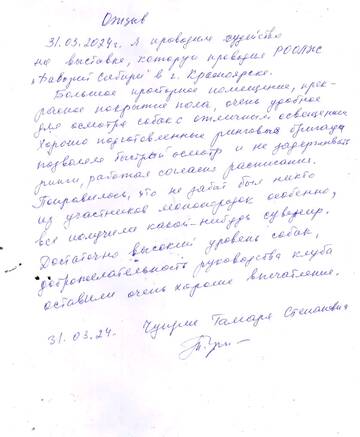 Отзыв
31.03.2024г. Я проводила судейство
на выставке, которую проводил РООЛЖС
в г. Красноярске.
Большое просторное помещение, прек-
расное покрытие пола, очень удобное
для осмотра собак с отличным освещением
Хорошо подготовленные ринговая бригада
позволяла быстрый осмотр и не задерживать
ринги, работая согласно расписания.
Понравилось, что не забыт был никто
из участников монопородок особенно,
все получили какой-нибудь сувенир.
Достаточно высокий уровень собак,
доброжелательность руководства клуба
оставили очень хорошие впечатление.
31.03.24. Тамара Степановна